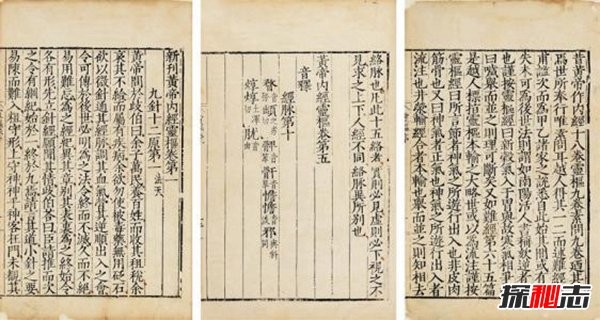 昔黃帝作內經十八卷靈樞九卷素問九卷迺其數
焉世所奉行唯素問耳越人得其一二而述難經皇
甫謐次而為甲乙諸家之說悉自此始其間或有得
失未可為後世法則謂如南陽活人書稱欬逆者噦
也謹按靈樞經曰新穀氣入于胃與故寒氣相爭故
曰噦舉而並之則理可斷矣又如難經第六十五篇
是越人標指靈樞本輸之大略世或以為流注謹按
靈樞經曰所言節者神氣之所遊行出入也非皮肉
筋骨也又曰神氣者正氣也神氣之所遊行出入者
流注也井滎輸經合者本輸也舉而並之則知相去
絡脉也凡此十五絡者實則必見虛則必下視之不
見求之上下人經不同絡脉異所別也
黃帝內經靈樞卷第五
音釋
經脉第十
新刊黃帝內經靈樞卷第一
九針十二原第一 法天
黃帝問於歧伯曰余子萬民養百姓而收其租稅余
哀其不給而屬有疾病余欲勿使被毒藥無用砭石
欲以微針通其經脉調其血氣營其逆順出入之會
令可傳於後世必明為之法令終而不滅久而不絕
易用難忘為之經紀異其章別其表裏為之終始令
各有形先立針經願聞其情歧伯答曰臣請推而次
之令有綱紀始於一終於九焉請言其道小針之要
易陳而難入粗守形上守神神乎神客在門未覩其
探秘志